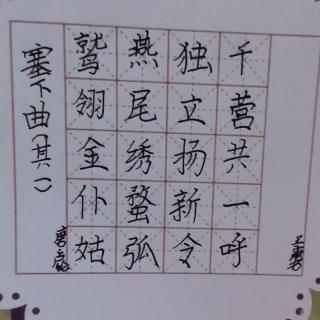 塞下曲(其一)
鹫翎金仆姑
燕尾绣蝥弧
独立扬新令
千营共一呼